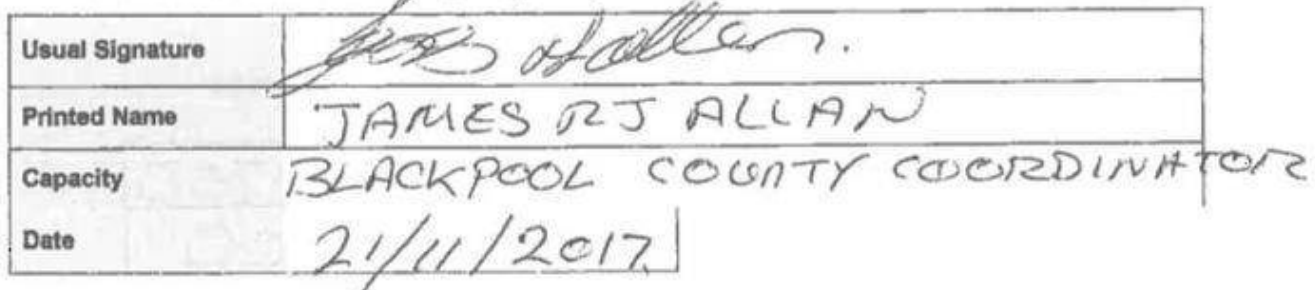 Usual Signature
Printed Name JAMES RJ ALLAN
Capacity BLACKPOOL COUNTY COORDINATOR
Date 21/11/2017.